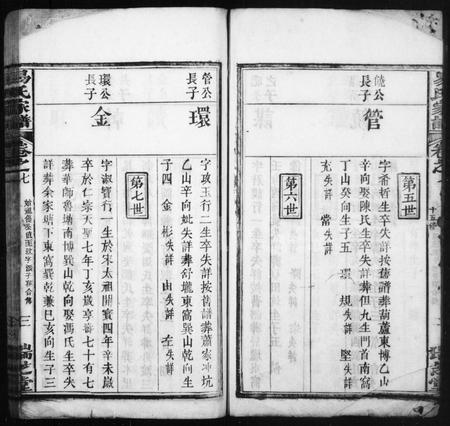 第五世
饒公長子
管
字希哲生卒失詳按舊譜葬葫蘆東博乙山
辛向娶陳氏生卒失詳葬但九生門首南窩
丁山癸向生子五 環 規失詳 堅失詳
充失詳 常失詳
第六世
管公長子
環
字攻玉行二生卒失詳按舊譜葬蕭家沖坑
乙山辛向妣失詳葬舒壠東窩巽山乾向生
子四 金 彬失詳 由失詳 全失詳
第七世
環公長子
金
字淑寶行一生於宋太祖開寶四年辛未歲
卒於仁宗天聖七年丁亥歲享壽七十有七
葬華師魯坳南博巽山乾向娶馮氏生卒失
詳葬余家塘下東窩巽乾兼巳亥向生子三
易氏家譜
卷之七
三
瑞芝堂